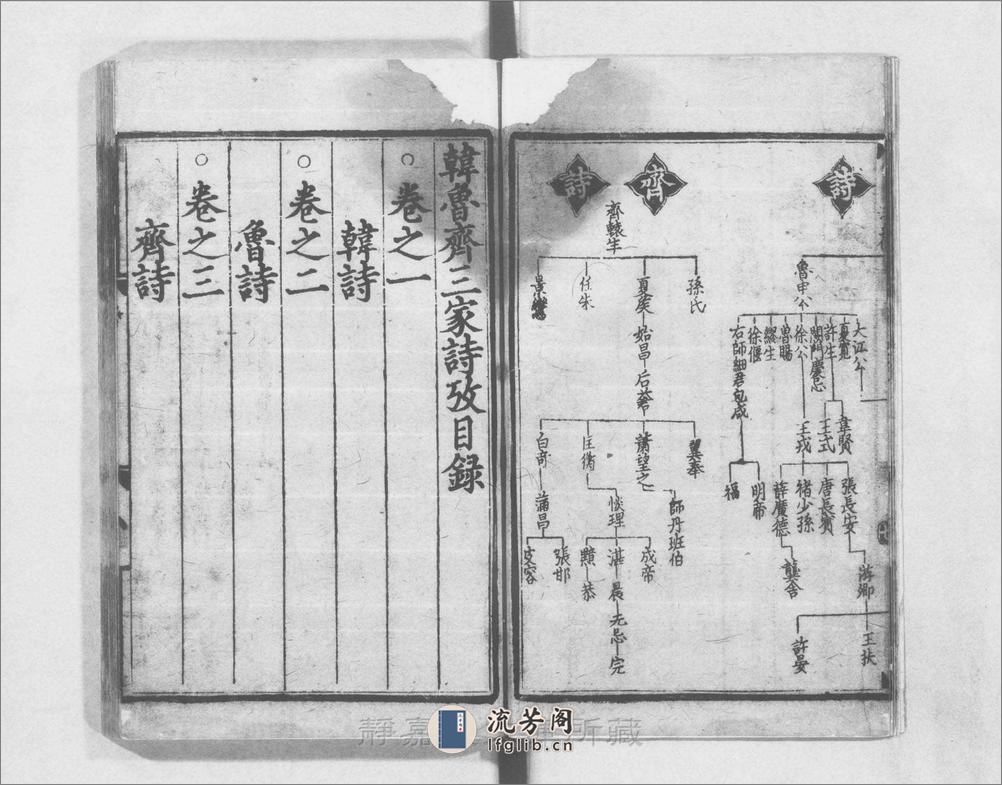 詩
魯申公
大江公
夏寬
許生
闕門慶忌
徐公
魯賜
繆生
徐偃
右師細君 包咸
韋賢
王式
王戎
明帝
福
張長安
唐長賓
褚少孫
薛廣德
龔舍
游卿
王扶
許晏
齊
詩
齊轅生
孫氏
夏矦 始昌 后蒼
任朱
景鸞
翼奉
蕭望之
匡衡
白奇
師丹 班伯
惔理
蒲昌
成帝
湛 晨 无忌 完
黯 恭
張邯
皮容
韓魯齊三家詩攷目録
○卷之一
韓詩
○卷之二
魯詩
○卷之三
齊詩
靜嘉
所藏
流芳阁
lfglib.cn